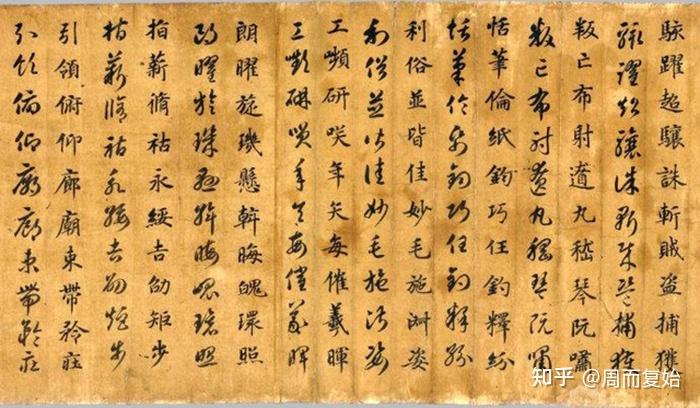 駭躍超驤誅斬賊盜捕獲
駭躍超驤誅斬賊盜捕獲
叛亡布射遼丸嵇琴阮嘯
叛亡布射遼丸嵇琴阮嘯
恬筆倫紙鈞巧任釣釋紛
恬筆倫紙鈞巧任釣釋紛
利俗並皆佳妙毛施淑姿
利俗並皆佳妙毛施淑姿
工嚬研咲年矢每催羲暉
工嚬研咲年矢每催羲暉
朗曜旋璣懸斡晦魄環照
朗曜旋璣懸斡晦魄環照
指薪脩祜永綏吉劭矩步
指薪脩祜永綏吉劭矩步
引領俯仰廊廟束帶矜莊
引領俯仰廊廟束帶矜莊
知乎 @周而复始